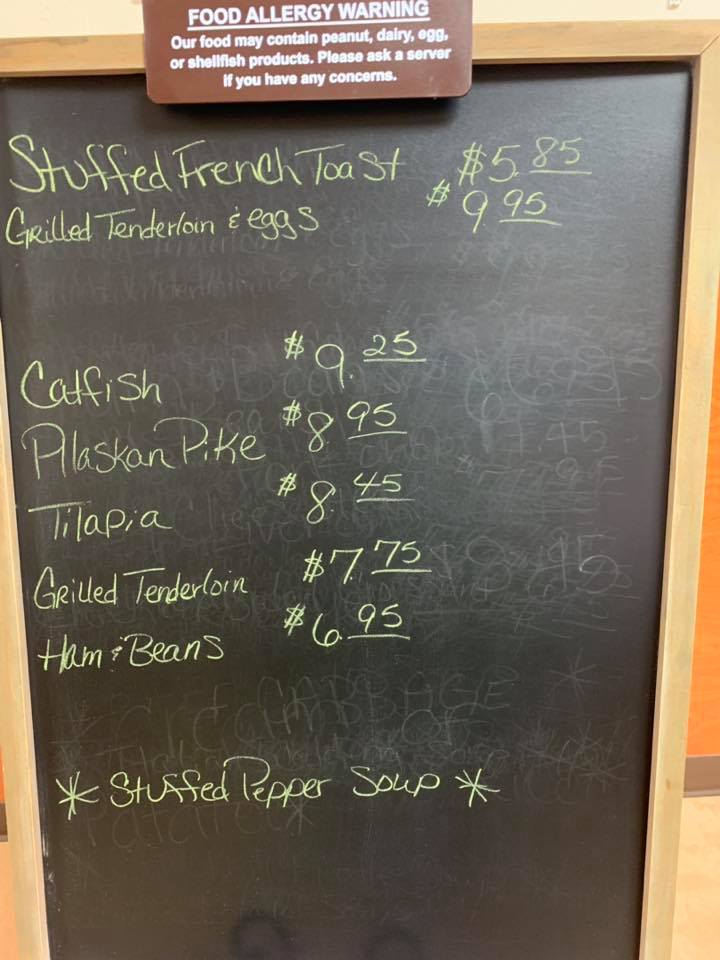 FOOD ALLERGY WARNING
Our food may contain peanut, dairy, egg,
or shellfish products. Please ask a server
if you have any concerns.
Stuffed French Toast $5.85
Grilled Tenderloin & eggs $9.95
Catfish $9.25
Alaskan Pike $8.95
Tilapia $8.45
Grilled Tenderloin $7.75
Ham & Beans $6.95
* Stuffed Pepper Soup *